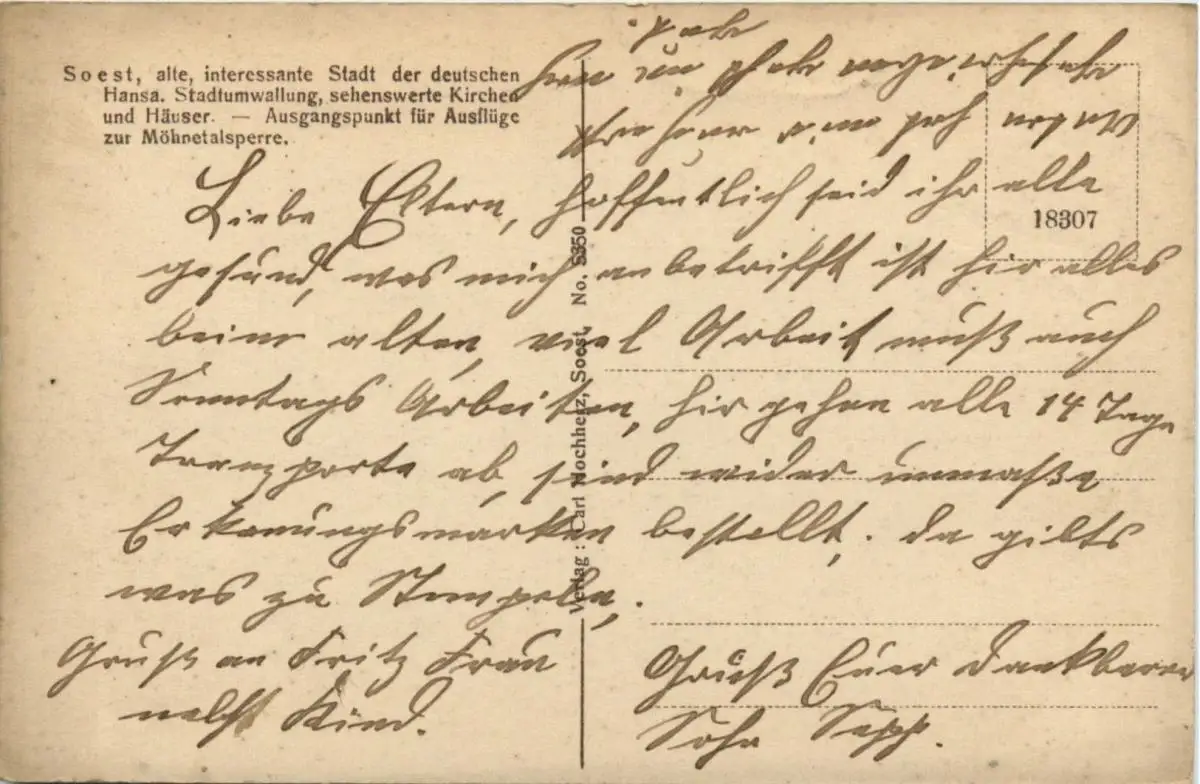 Soest, alte, interessante Stadt der deutschen
Hansa. Stadtumwallung, sehenswerte Kirchen
und Häuser. — Ausgangspunkt für Ausflüge
zur Möhnetalsperre.
18307
Liebe Eltern, hoffentlich seid ihr alle
gesund, was mich anbetrifft ist hir alles
beim alten, viel Arbeit muß auch
Sonntags Arbeiten, hir gehen alle 14 Tage
Tranzporte ab, sind wider unmaße
Erkenungsmarken bestellt, da gilts
was zu Stempeln.
Gruß an Fritz Frau
nebst Kind.
Gruß Euer dankbarer
Sohn Sepp.
Verlag: Carl Nochherz, Soest. No. 5350